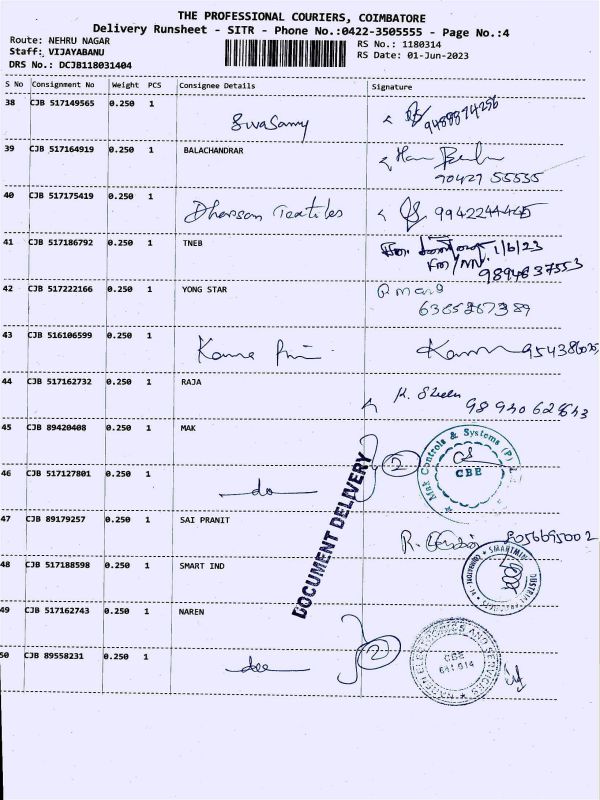 THE PROFESSIONAL COURIERS, COIMBATORE
Delivery Runsheet - SITR - Phone No.:0422-3505555 - Page No.:4
Route: NEHRU NAGAR RS No.: 1180314
Staff: VIJAYABANU RS Date: 01-Jun-2023
DRS No.: DCJB118031404
S No Consignment No Weight PCS Consignee Details Signature
38 CJB 517149565 0.250 1
39 CJB 517164919 0.250 1 BALACHANDRAR
90427 55555
40 CJB 517175419 0.250 1 Dharsan Textiles 9942244445
41 CJB 517186792 0.250 1 TNEB 1/6/23
9894637553
42 CJB 517222166 0.250 1 YONG STAR
6385287389
43 CJB 516106599 0.250 1
44 CJB 517162732 0.250 1 RAJA
45 CJB 89420408 0.250 1 MAK 2 Mak Controls & Systems (P)
CBE
46 CJB 517127801 0.250 1 do
DOCUMENT DELIVERY
47 CJB 89179257 0.250 1 SAI PRANIT 8056695002
48 CJB 517188598 0.250 1 SMART IND
49 CJB 517162743 0.250 1 NAREN
50 CJB 89558231 0.250 1 2 CBE
641 014